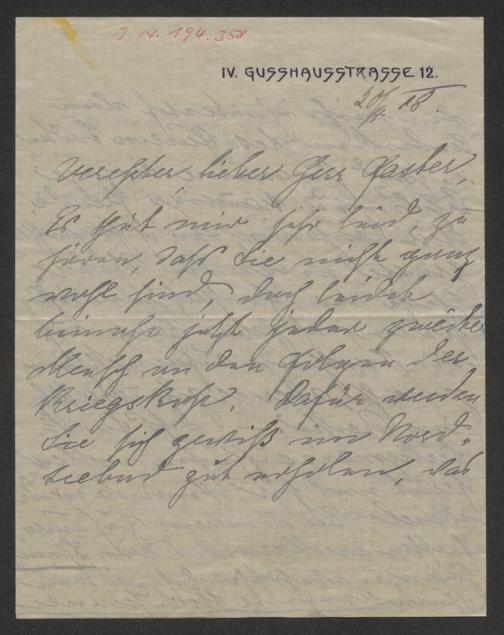 J. N. 194.358
IV. GUSSHAUSSTRASSE 12.
20/4 18.
Verehrter, lieber Herr
Es thut mir sehr leid, zu
hören, daß Sie nicht ganz
wohl sind, doch leidet
beinahe jetzt jeder zweite
Mensch an den Folgen der
Kriegskost. Dafür werden
Sie sich gewiß im Nord-
seebad gut erholen, das